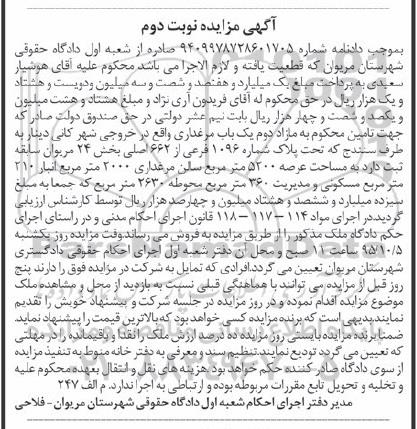 آگهی مزایده نوبت دوم
بموجب دادنامه شماره ۹۴۰۹۹۷۸۷۲۸۶۰۱۷۰۵ صادره از شعبه اول دادگاه حقوقی
شهرستان مریوان که قطعیت یافته و لازم الاجرا می باشد محکوم علیه آقای هوشیار
سعیدی به پرداخت مبلغ یک میلیارد و هفتصد و شصت و سه میلیون و دویست و هشتاد
و یک هزار ریال در حق محکوم له آقای فریدون آری نژاد و مبلغ هشتاد و هشت میلیون
و یکصد و شصت و چهار هزار ریال بابت نیم عشر دولتی در حق صندوق دولت صادر که
جهت تامین محکوم به مازاد دوم یک باب مرغداری واقع در خروجی شهر کانی دینار به
طرف سنندج که تحت پلاک شماره ۱۰۹۶ فرعی از ۶۶۲ اصلی بخش ۲۴ مریوان سابقه
ثبت دارد به مساحت عرصه ۵۲۰۰ متر مربع سالن مرغداری ۲۰۰۰ متر مربع انبار ۲۱۰
متر مربع مسکونی و مدیریت ۳۶۰ متر مربع محوطه ۲۶۳۰ متر مربع که جمعا به مبلغ
سیزده میلیارد و ششصد و هشتاد میلیون و چهارصد هزار ریال توسط کارشناس ارزیابی
گردید.در اجرای مواد ۱۱۴ – ۱۱۷ – ۱۱۸ قانون اجرای احکام مدنی و در راستای اجرای
حکم دادگاه ملک مذکور را از طریق مزایده به فروش می رساند.وقت مزایده روز یکشنبه
۹۵/۱۰/۵ ساعت ۱۰ صبح و محل آن دفتر شعبه اول اجرای احکام حقوقی دادگستری
شهرستان مریوان تعیین می گردد.افرادی که تمایل به شرکت در مزایده فوق را دارند پنج
روز قبل از مزایده می توانند با هماهنگی قبلی نسبت به بازدید از محل و مشاهده ملک
موضوع مزایده اقدام نموده و در روز مزایده در جلسه شرکت و پیشنهاد خویش را تقدیم
نمایند.بدیهی است که برنده مزایده کسی خواهد بود که بالاترین قیمت را پیشنهاد نماید.
ضمنا برنده مزایده بایستی روز مزایده ده درصد ارزش ملک را نقدا و باقیمانده را در مهلتی
که تعیین می گردد تودیع نمایند.تنظیم سند و معرفی به دفتر خانه منوط به تنفیذ مزایده
از سوی دادگاه صادر کننده حکم خواهد بود. هزینه های نقل و انتقال بعهده محکوم علیه
و تخلیه و تحویل تابع مقررات مربوطه بوده و ارتباطی به اجرا ندارد. م الف ۲۴۷
مدیر دفتر اجرای احکام شعبه اول دادگاه حقوقی شهرستان مریوان – فلاحی